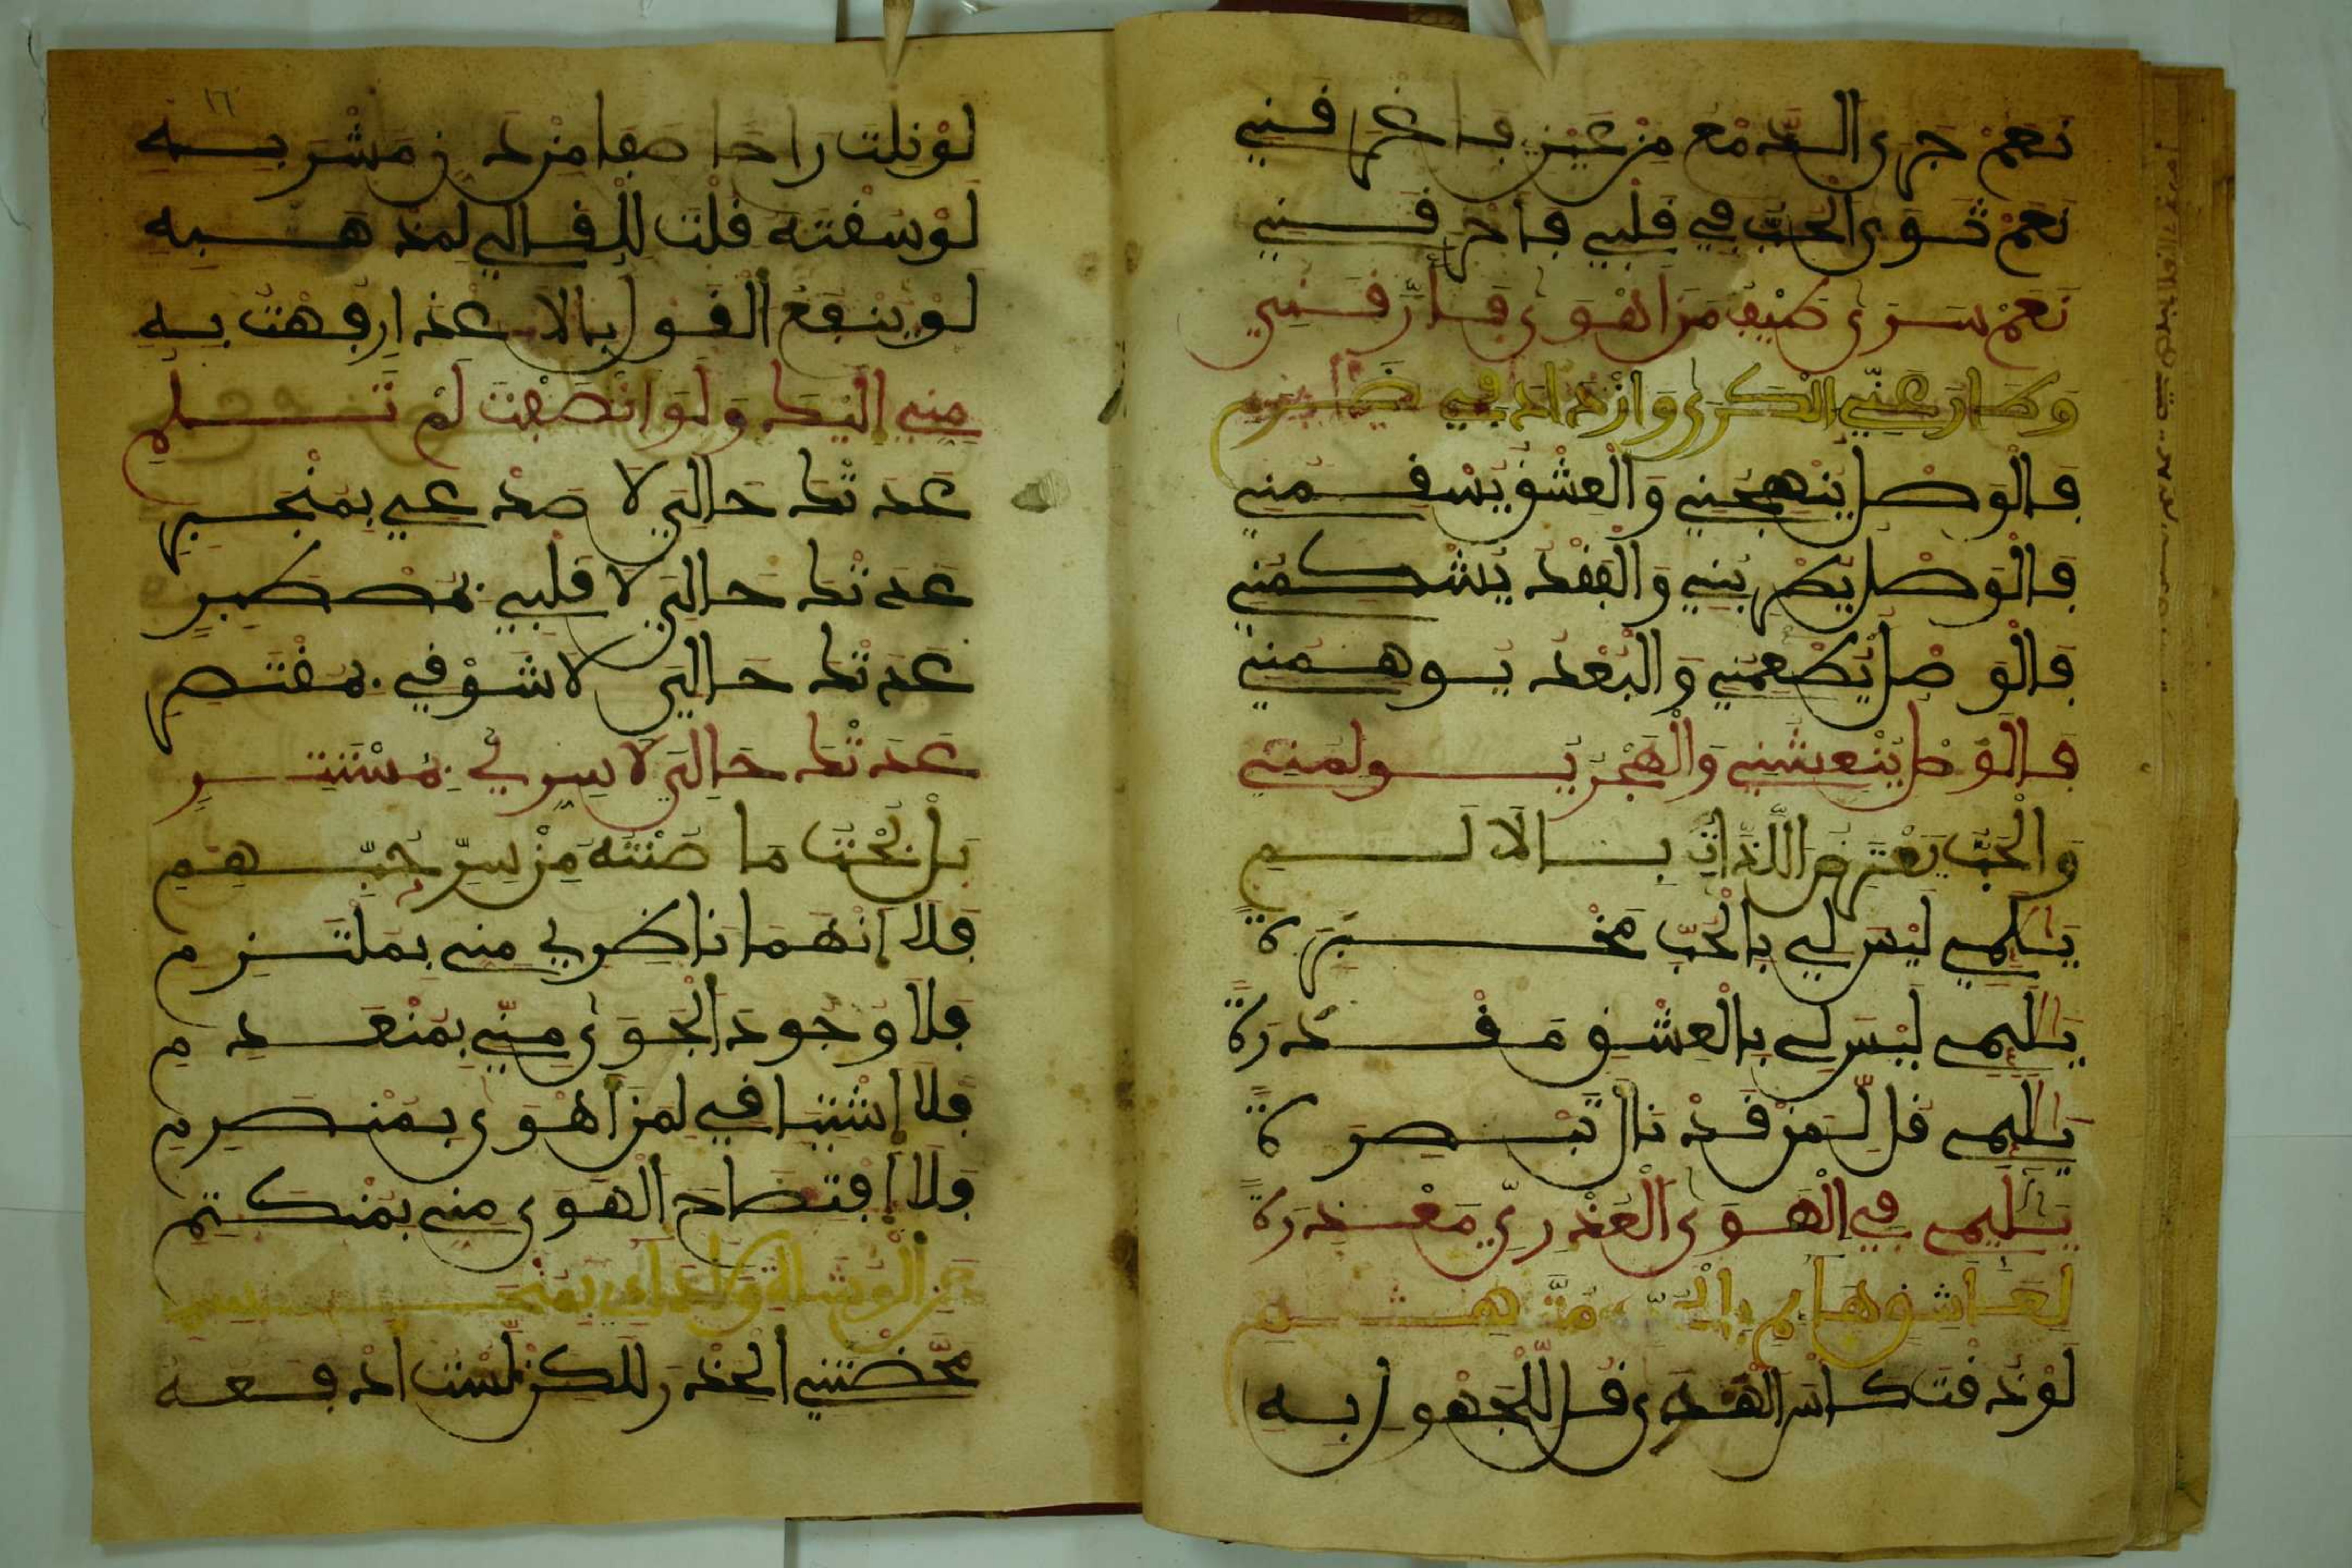 نَعَمْ جَرى الدَّمْعُ مِنْ عَيْنِي فَأَغْرَقَنِي
نَعَمْ ثَوى الحُبُّ فِي قَلْبِي فَأَحْرَقَنِي
نَعَمْ سَرَى طَيْفُ مَنْ أَهْوَى فَأَرَّقَنِي
وَطَارَ عَنِّي الْكَرَى وَازْدَادَ بِي
فَالْوَصْلُ يُنْهِجُنِي وَالْعِشْقُ يُسْقِمُنِي
فَالْوَصْلُ يُطْرِبُنِي وَالْفَقْدُ
فَالْوَصْلُ يُطْعِمُنِي وَالْبُعْدُ يُوهِمُنِي
فَالْوَصْلُ يُنْعِشُنِي وَالْهَجْرُ يُولِمُنِي
وَالْحُبُّ يَعْتَرِضُ اللَّذَّاتِ بِالْأَلَمِ
يَا لَائِمِي لَيْسَ لِي بِالْحُبِّ مَخْبَرَةٌ
يَا لَائِمِي لَيْسَ لِي بِالْعِشْقِ مَقْدَرَةٌ
يَا لَائِمِي قُلْ لِمَنْ قَدْ نَالَ تَبْصِرَةً
يَا لَائِمِي فِي الْهَوَى الْعُذْرِيِّ مَعْذِرَةً
لِعَاشِقٍ هَامَ
لَوْ ذُقْتَ كَأْسَ الْهَوَى قَالَ الْجَهُولُ بِهِ
لَوْ نِلْتَ رَاحًا صَفَا مِنْ دَنِّ مَشْرَبِهِ
لَوْ سُقْتَهُ قُلْتَ لِلْقَالِي لِمَذْهَبِهِ
لَوْ يَنْفَعُ الْقَوْلُ بِالْأَعْذَارِ فُهْتُ بِهِ
مِنِّي إِلَيْكَ وَلَوْ أَنْصَفْتَ لَمْ تَلُمِ
عَدَتْكَ حَالِيَ لَا صَدْعِي بِمُنْجَبِرِ
عَدَتْكَ حَالِيَ لَا قَلْبِي بِمُصْطَبِرٍ
عَدَتْكَ حَالِيَ لَا شَوْقِي بِمُقْتَصِرِ
عَدَتْكَ حَالِيَ لَا سِرِّي بِمُسْتَتِرٍ
بَلْ بُحْتُ مَا صُنْتُهُ مِنْ سِرِّ حُبِّهِمِ
فَلَا انْهَمَا نَاظِرِي مِنِّي بِمُلْتَزِمِ
فَلَا وُجُودَ الْجَوَى مِنِّي بِمُنْعَدِمِ
فَلَا اشْتِيَاقِي لِمَنْ أَهْوَى بِمُنْصَرِمِ
فَلَا افْتِضَاحَ الْهَوَى مِنِّي بِمُنْكَتِمِ
عَنِ الْوُشَاةِ وَلَا دَائِي بِمُنْحَسِمِ
مَحَّضْتَنِي الْحِذْرَ لَكِنْ لَسْتُ أَدْفَعُهُ